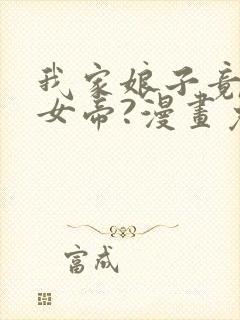 我家娘子竟
女帝?漫畫
富成